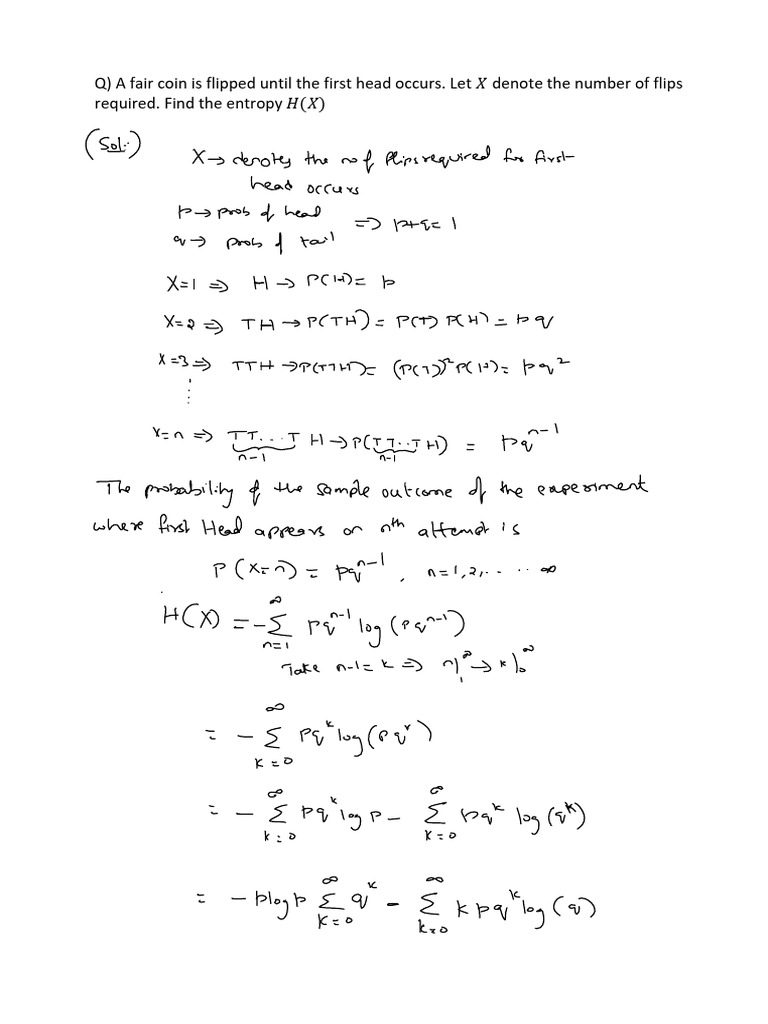 Q) A fair coin is flipped until the first head occurs. Let X denote the number of flips
required. Find the entropy H(X)
(Sol:)
X → denotes the no of flips required for first
head occurs
p → prob of head
q → prob of tail
⇒ p+q = 1
X=1 ⇒ H → P(H) = p
X=2 ⇒ TH → P(TH) = P(T) P(H) = pq
X=3 ⇒ TTH → P(TTH) = (P(T))² P(H) = pq²
⋮
X=n ⇒ TT...T H → P(TT..TH) = pq^{n-1}
n-1 n-1
The probability of the sample outcome of the experiment
where first Head appears on nth attempt is
P(X=n) = pq^{n-1}, n=1,2,..... ∞
H(X) = -∑_{n=1}^{∞} pq^{n-1} log(pq^{n-1})
Take n-1=k ⇒ n|_1^∞ → k|_0^∞
= -∑_{k=0}^{∞} pq^k log(pq^k)
= -∑_{k=0}^{∞} pq^k log p - ∑_{k=0}^{∞} pq^k log(q^k)
= -p log p ∑_{k=0}^{∞} q^k - ∑_{k=0}^{∞} k pq^k log(q)